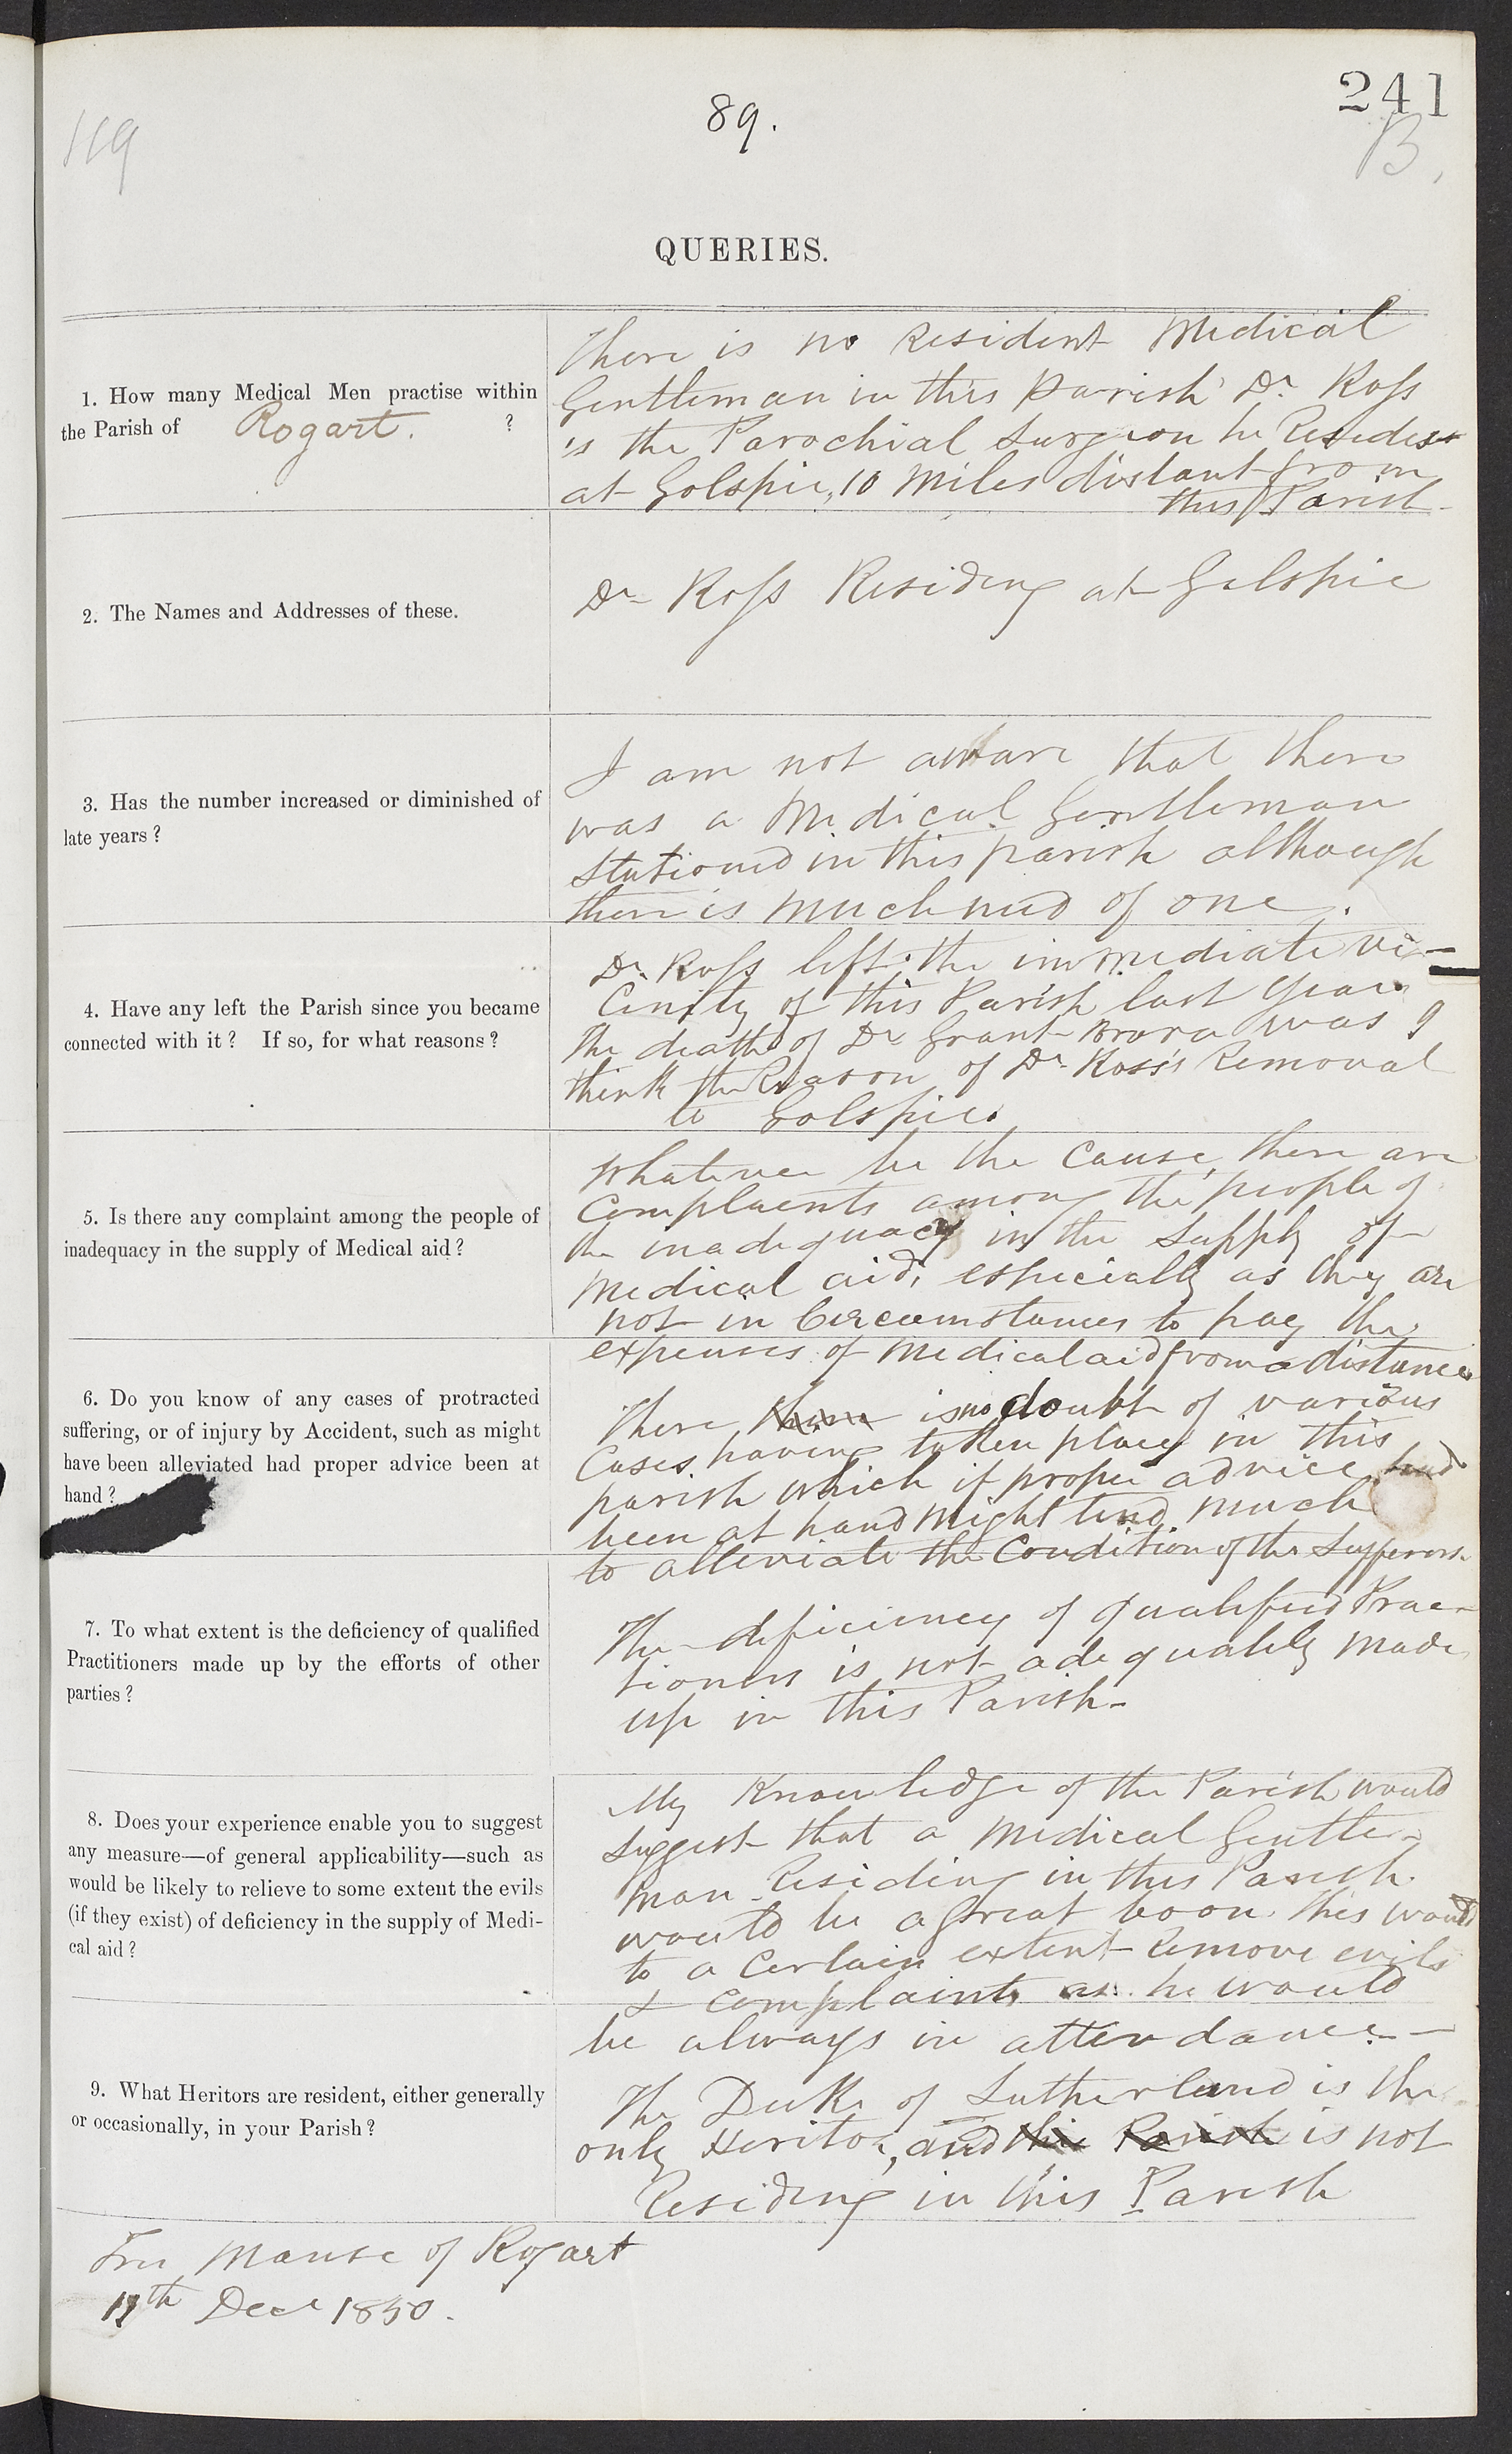 241
89.
119
B.
QUERIES.
1. How many Medical Men practise within
the Parish of Rogart. ?
There is no Resident Medical
Gentleman in this Parish Dr Ross
is the Parochial Surgeon he Resides
at Golspie, 10 Miles distant from
this Parish
2. The Names and Addresses of these.
Dr Ross Residing at Golspie
3. Has the number increased or diminished of
late years?
I am not aware that there
was a Medical Gentleman
stationed in this parish although
there is much need of one.
4. Have any left the Parish since you became
connected with it? If so, for what reasons?
Dr. Ross left the immediate vi-
cinity of this Parish last year
The death of Dr Grant Brora was I
think the Reason of Dr Ross's Removal
to Golspie.
5. Is there any complaint among the people of
inadequacy in the supply of Medical aid?
Whatever be the Cause, there are
Complaents among the people of
the inadequacy in the Supply of
Medical aid, especially as they are
not in Circumstances to pay the
expenses of Medical aid from a distance
6. Do you know of any cases of protracted
suffering, or of injury by Accident, such as might
have been alleviated had proper advice been at
hand?
There is no doubt of various
Cases having taken place in this
parish which if proper advice had
been at hand Might tend much
to alleviate the Condition of the Sufferers.
7. To what extent is the deficiency of qualified
Practitioners made up by the efforts of other
parties?
The deficiency of qualified Prac-
tioners is not adequately made
up in this Parish-
8. Does your experience enable you to suggest
any measure—of general applicability—such as
would be likely to relieve to some extent the evils
(if they exist) of deficiency in the supply of Medi-
cal aid?
My Knowledge of the Parish would
suggest that a Medical Gentle-
man Residing in this Parish
would be a Great boon. This would
to a Certain extent Remove evils
& complaints as he would
be always in attendance.-
9. What Heritors are resident, either generally
or occasionally, in your Parish?
The Duke of Sutherland is the
only Heritor, and this Parish is not
Residing in this Parish
Free Manse of Rogart
17th Decr 1850.